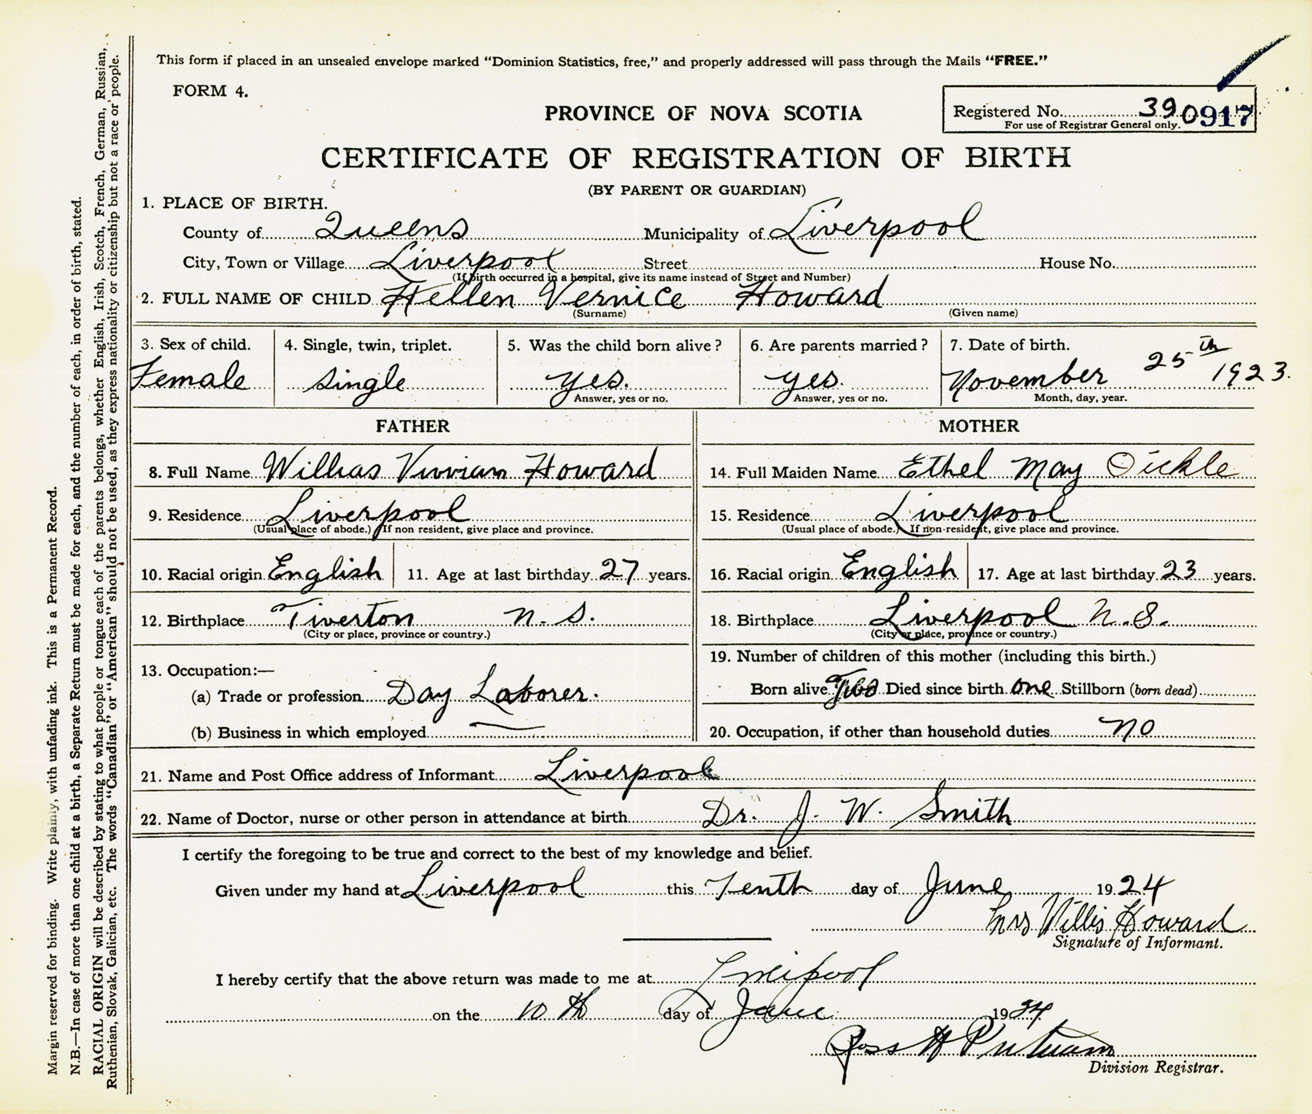 This form if placed in an unsealed envelope marked "Dominion Statistics, free," and properly addressed will pass through the Mails "FREE."
FORM 4.
PROVINCE OF NOVA SCOTIA
Registered No. 39 0917
For use of Registrar General only.
CERTIFICATE OF REGISTRATION OF BIRTH
(BY PARENT OR GUARDIAN)
1. PLACE OF BIRTH.
County of Queens Municipality of Liverpool
City, Town or Village Liverpool Street House No.
(If birth occurred in a hospital, give its name instead of Street and Number)
2. FULL NAME OF CHILD Hellen Vernice Howard
(Surname) (Given name)
3. Sex of child. 4. Single, twin, triplet. 5. Was the child born alive? 6. Are parents married? 7. Date of birth.
Female Single Yes. Yes. November 25th 1923.
Answer, yes or no. Answer, yes or no. Month, day, year.
FATHER MOTHER
8. Full Name Willias Vivian Howard 14. Full Maiden Name Ethel May Oickle
9. Residence Liverpool 15. Residence Liverpool
(Usual place of abode.) If non resident, give place and province. (Usual place of abode.) If non-resident, give place and province.
10. Racial origin English 11. Age at last birthday 27 years. 16. Racial origin English 17. Age at last birthday 23 years.
12. Birthplace Tiverton N.S. 18. Birthplace Liverpool N.S.
(City or place, province or country.) (City or place, province or country.)
13. Occupation:— 19. Number of children of this mother (including this birth.)
(a) Trade or profession Day Laborer. Born alive Two Died since birth one Stillborn (born dead)
(b) Business in which employed 20. Occupation, if other than household duties no
21. Name and Post Office address of Informant Liverpool
22. Name of Doctor, nurse or other person in attendance at birth Dr. J. W. Smith
I certify the foregoing to be true and correct to the best of my knowledge and belief.
Given under my hand at Liverpool this Tenth day of June 1924
Mrs Willis Howard
Signature of Informant.
I hereby certify that the above return was made to me at Liverpool
on the 10th day of June 1924
Ross H Putnam
Division Registrar.
Margin reserved for binding. Write plainly, with unfading ink. This is a Permanent Record.
N.B.—In case of more than one child at a birth, a Separate Return must be made for each, and the number of each, in order of birth, stated.
RACIAL ORIGIN will be described by stating to what people or tongue each of the parents belongs, whether English, Irish, Scotch, French, German, Russian,
Ruthenian, Slovak, Galician, etc. The words "Canadian" or "American" should not be used, as they express nationality or citizenship but not a race or people.